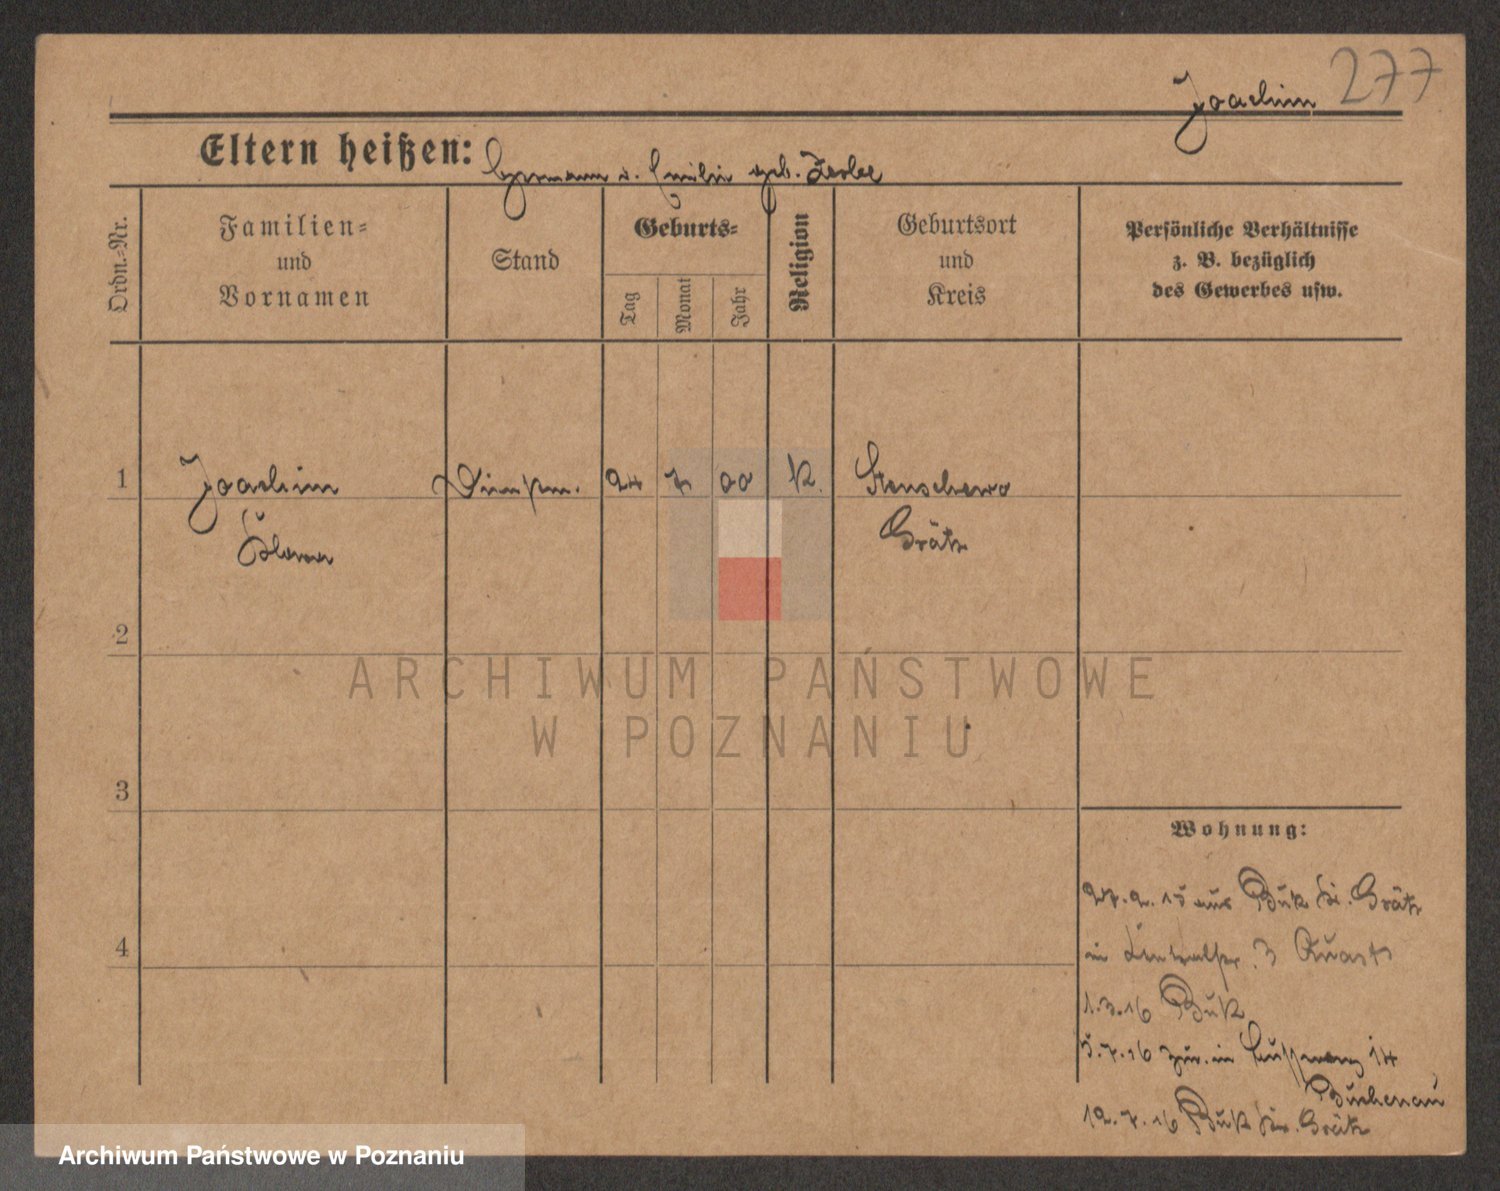 277
Joachim
Eltern heißen: Hermann u. Emilie geb. Zerbe
Ordn.-Nr.
Familien-
und
Vornamen
Stand
Geburts-
Tag
Monat
Jahr
Religion
Geburtsort
und
Kreis
Persönliche Verhältnisse
z. B. bezüglich
des Gewerbes usw.
1 Joachim 24 7 00 K. Stenschewo
Grätz
2
ARCHIWUM PAŃSTWOWE
W POZNANIU
3
Wohnung:
27.2.15 aus Buk Kr. Grätz
4
in 3 Quast
1.3.16 Buk
5.7.16 zur. in 14
Buchenau
12.7.16 Buk Kr. Grätz
Archiwum Państwowe w Poznaniu